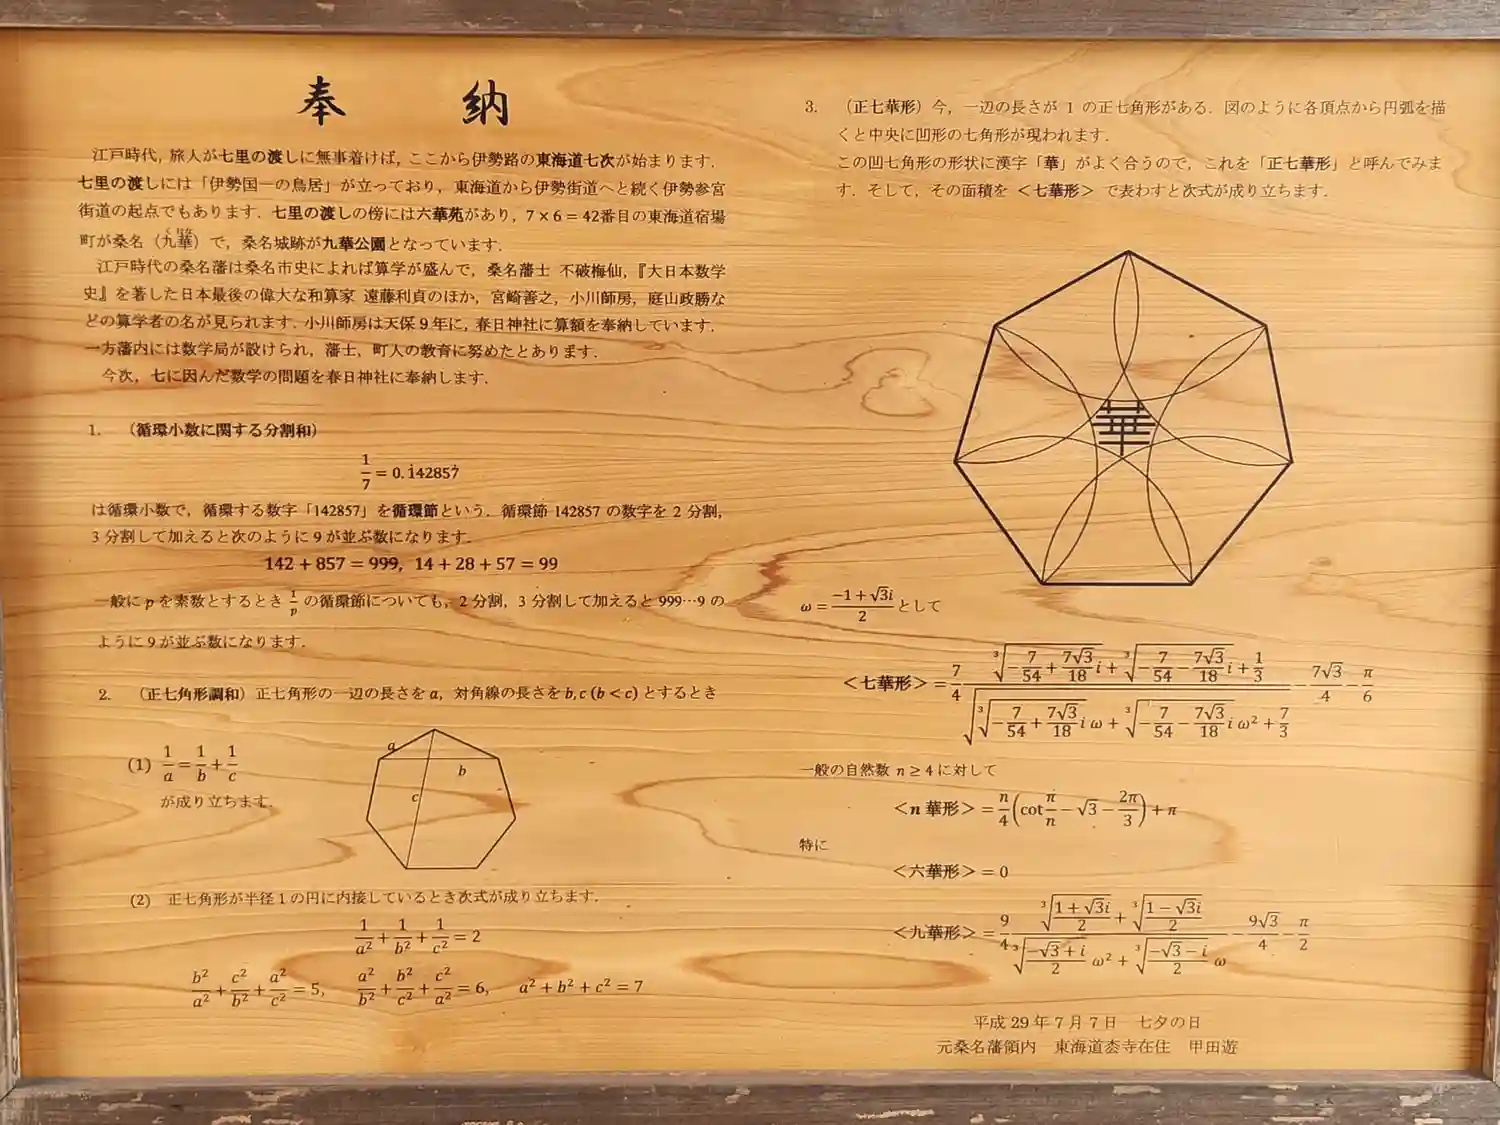 奉　納
江戸時代，旅人が七里の渡しに無事着けば，ここから伊勢路の東海道七次が始まります．
七里の渡しには「伊勢国一の鳥居」が立っており，東海道から伊勢街道へと続く伊勢参宮
街道の起点でもあります．七里の渡しの傍には六華苑があり，7×6＝42番目の東海道宿場
町が桑名（九華）で，桑名城跡が九華公園となっています．
江戸時代の桑名藩は桑名市史によれば算学が盛んで，桑名藩士 不破梅仙，『大日本数学
史』を著した日本最後の偉大な和算家 遠藤利貞のほか，宮崎善之，小川師房，庭山政勝な
どの算学者の名が見られます．小川師房は天保９年に，春日神社に算額を奉納しています．
一方藩内には数学局が設けられ，藩士，町人の教育に努めたとあります．
今次，七に因んだ数学の問題を春日神社に奉納します．
1.　（循環小数に関する分割和）
1/7 = 0.1̇42857̇
は循環小数で，循環する数字「142857」を循環節という．循環節 142857 の数字を 2 分割，
3 分割して加えると次のように 9 が並ぶ数になります．
142 + 857 = 999, 14 + 28 + 57 = 99
一般に p を素数とするとき 1/p の循環節についても，2 分割，3 分割して加えると 999⋯9 の
ように 9 が並ぶ数になります．
2.　（正七角形調和）正七角形の一辺の長さを a，対角線の長さを b, c (b < c) とするとき
(1) 1/a = 1/b + 1/c
が成り立ちます．
a
b
c
(2)　正七角形が半径 1 の円に内接しているとき次式が成り立ちます．
1/a² + 1/b² + 1/c² = 2
b²/a² + c²/b² + a²/c² = 5, a²/b² + b²/c² + c²/a² = 6, a² + b² + c² = 7
3.　（正七華形）今，一辺の長さが 1 の正七角形がある．図のように各頂点から円弧を描
くと中央に凹形の七角形が現われます．
この凹七角形の形状に漢字「華」がよく合うので，これを「正七華形」と呼んでみま
す．そして，その面積を ＜七華形＞ で表わすと次式が成り立ちます．
華
ω = (−1 + √3i)/2 として
＜七華形＞ = 7/4 (∛(−7/54 + 7√3/18 i) + ∛(−7/54 − 7√3/18 i) + 1/3) / √(∛(−7/54 + 7√3/18 i) ω + ∛(−7/54 − 7√3/18 i) ω² + 7/3) − 7√3/4 − π/6
一般の自然数 n ≥ 4 に対して
＜n 華形＞ = n/4 (cot π/n − √3 − 2π/3) + π
特に
＜六華形＞ = 0
＜九華形＞ = 9/4 (∛((1 + √3i)/2) + ∛((1 − √3i)/2)) / (∛((−√3 + i)/2) ω² + ∛((−√3 − i)/2) ω) − 9√3/4 − π/2
平成 29 年 7 月 7 日　七夕の日
元桑名藩領内　東海道枩寺在住　甲田遊